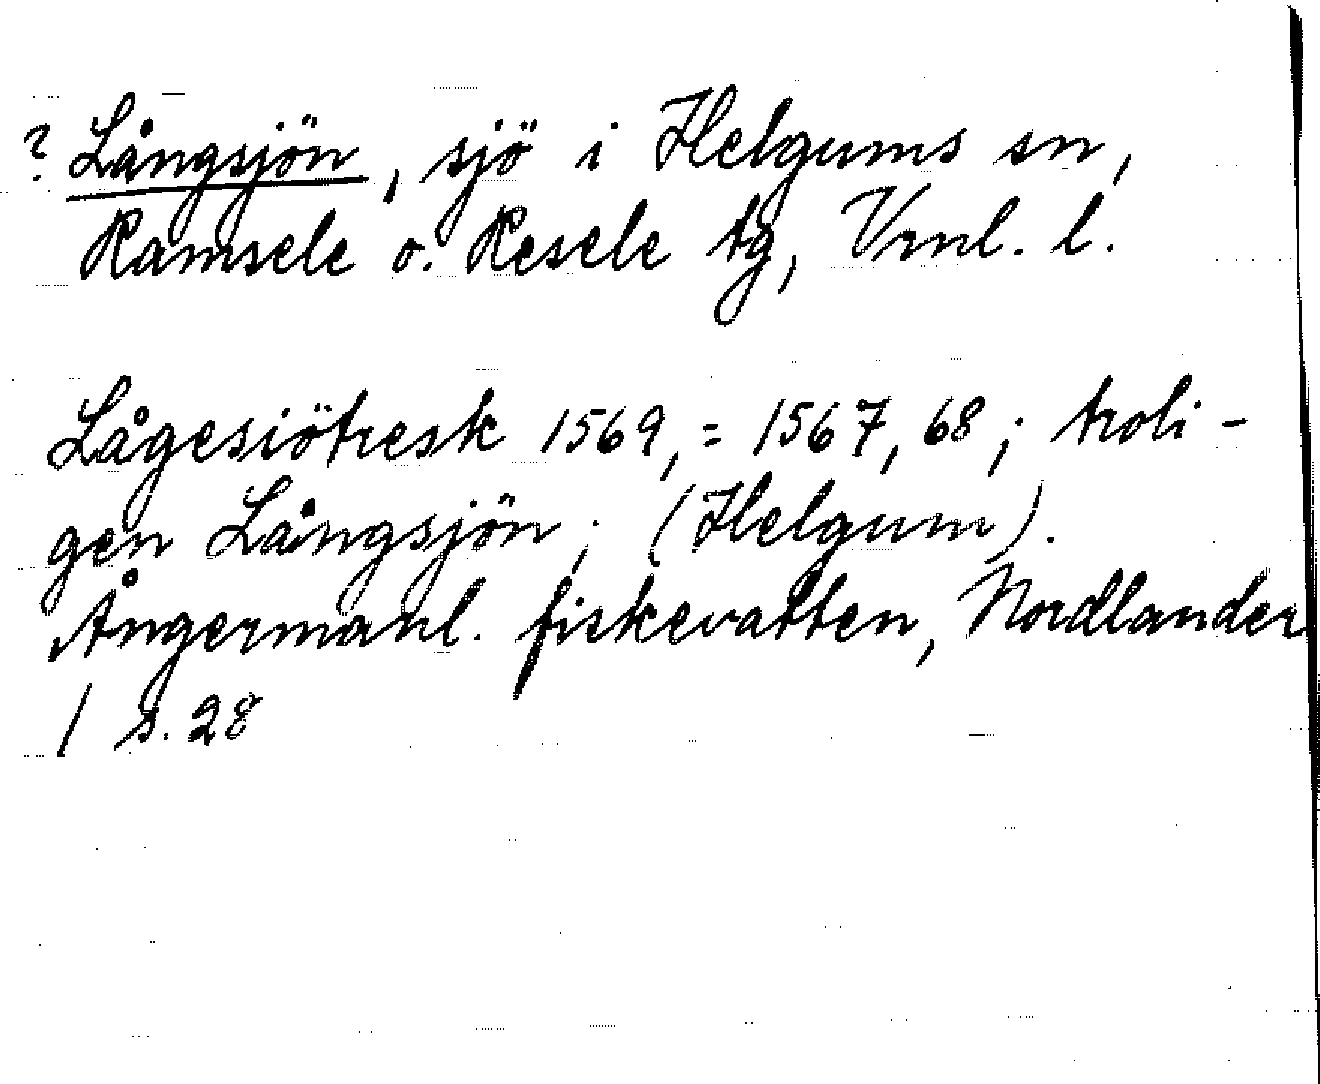 ? Långsjön, sjö i Helgums sn,
Ramsele o. Resele tg, Vrnl. l.
Lågesiötresk 1569, = 1567, 68; troli-
gen Långsjön; (Helgum).
Ångermanl. fiskevatten, Nordlander
/ s. 28